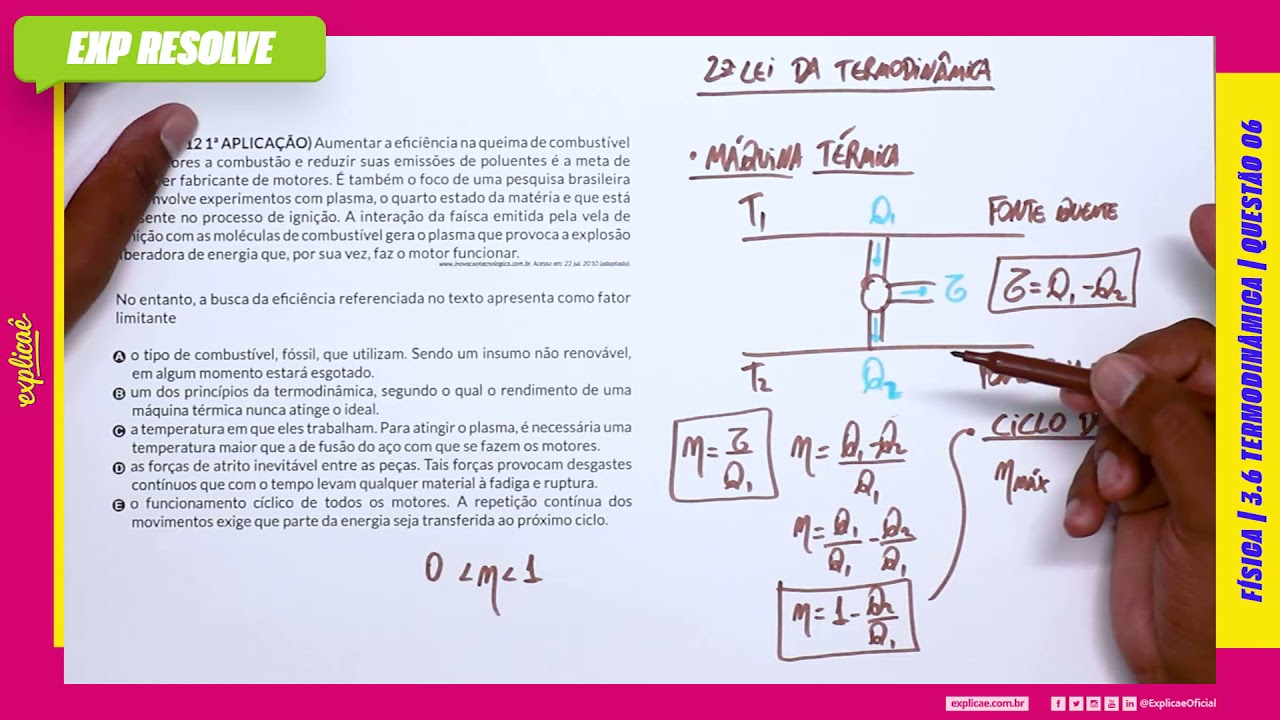 EXP RESOLVE
12 1ª APLICAÇÃO) Aumentar a eficiência na queima de combustível
ores a combustão e reduzir suas emissões de poluentes é a meta de
er fabricante de motores. É também o foco de uma pesquisa brasileira
nvolve experimentos com plasma, o quarto estado da matéria e que está
sente no processo de ignição. A interação da faísca emitida pela vela de
nição com as moléculas de combustível gera o plasma que provoca a explosão
beradora de energia que, por sua vez, faz o motor funcionar.
www.inovacaotecnologica.com.br. Acesso em: 22 jul. 2010 (adaptado).
No entanto, a busca da eficiência referenciada no texto apresenta como fator
limitante
A o tipo de combustível, fóssil, que utilizam. Sendo um insumo não renovável,
em algum momento estará esgotado.
B um dos princípios da termodinâmica, segundo o qual o rendimento de uma
máquina térmica nunca atinge o ideal.
C a temperatura em que eles trabalham. Para atingir o plasma, é necessária uma
temperatura maior que a de fusão do aço com que se fazem os motores.
D as forças de atrito inevitável entre as peças. Tais forças provocam desgastes
contínuos que com o tempo levam qualquer material à fadiga e ruptura.
E o funcionamento cíclico de todos os motores. A repetição contínua dos
movimentos exige que parte da energia seja transferida ao próximo ciclo.
0 < η < 1
2ª LEI DA TERMODINÂMICA
• MÁQUINA TÉRMICA
T₁ Q₁ FONTE QUENTE
τ τ = Q₁ - Q₂
T₂ Q₂
η = τ/Q₁ η = Q₁ - Q₂/Q₁
η = Q₁/Q₁ - Q₂/Q₁
η = 1 - Q₂/Q₁
• CICLO D
η MÁX
explicaê
FÍSICA | 3.6 TERMODINÂMICA | QUESTÃO 06
explicae.com.br @ExplicaeOficial